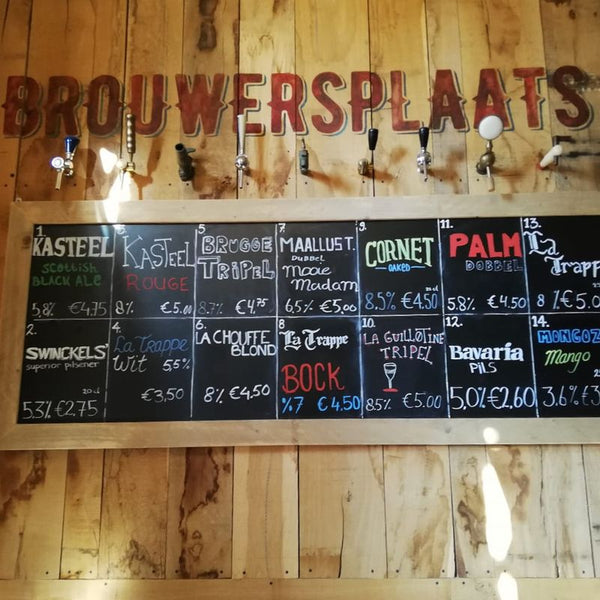 BROUWERSPLAATS
1.
KASTEEL
SCOTTISH
BLACK ALE
5,8% €4,75
KASTEEL
ROUGE
8% €5.00
5
BRUGGE
TRIPEL
8.7% €4,75
7.
MAALLUST.
DUBBEL
Mooie
Madam
6,5% €5,00
9.
CORNET
OAKED
20cl
8.5% €4.50
11.
PALM
DOBBEL
5.8% €4.50
13.
La
Trappe
8 % €5.0
2.
SWINCKELS'
superior pilsener
20cl
5.3% €2.75
4.
La Trappe
Wit 5,5%
€3,50
6.
LA CHOUFFE
BLOND
8% €4,50
8
La Trappe
BOCK
%7 €4.50
10.
LA GUILLOTINE
TRIPEL
8.5% €5.00
12.
Bavaria
PILS
5,0% €2,60
14.
MONGOZ
Mango
3.6% €3